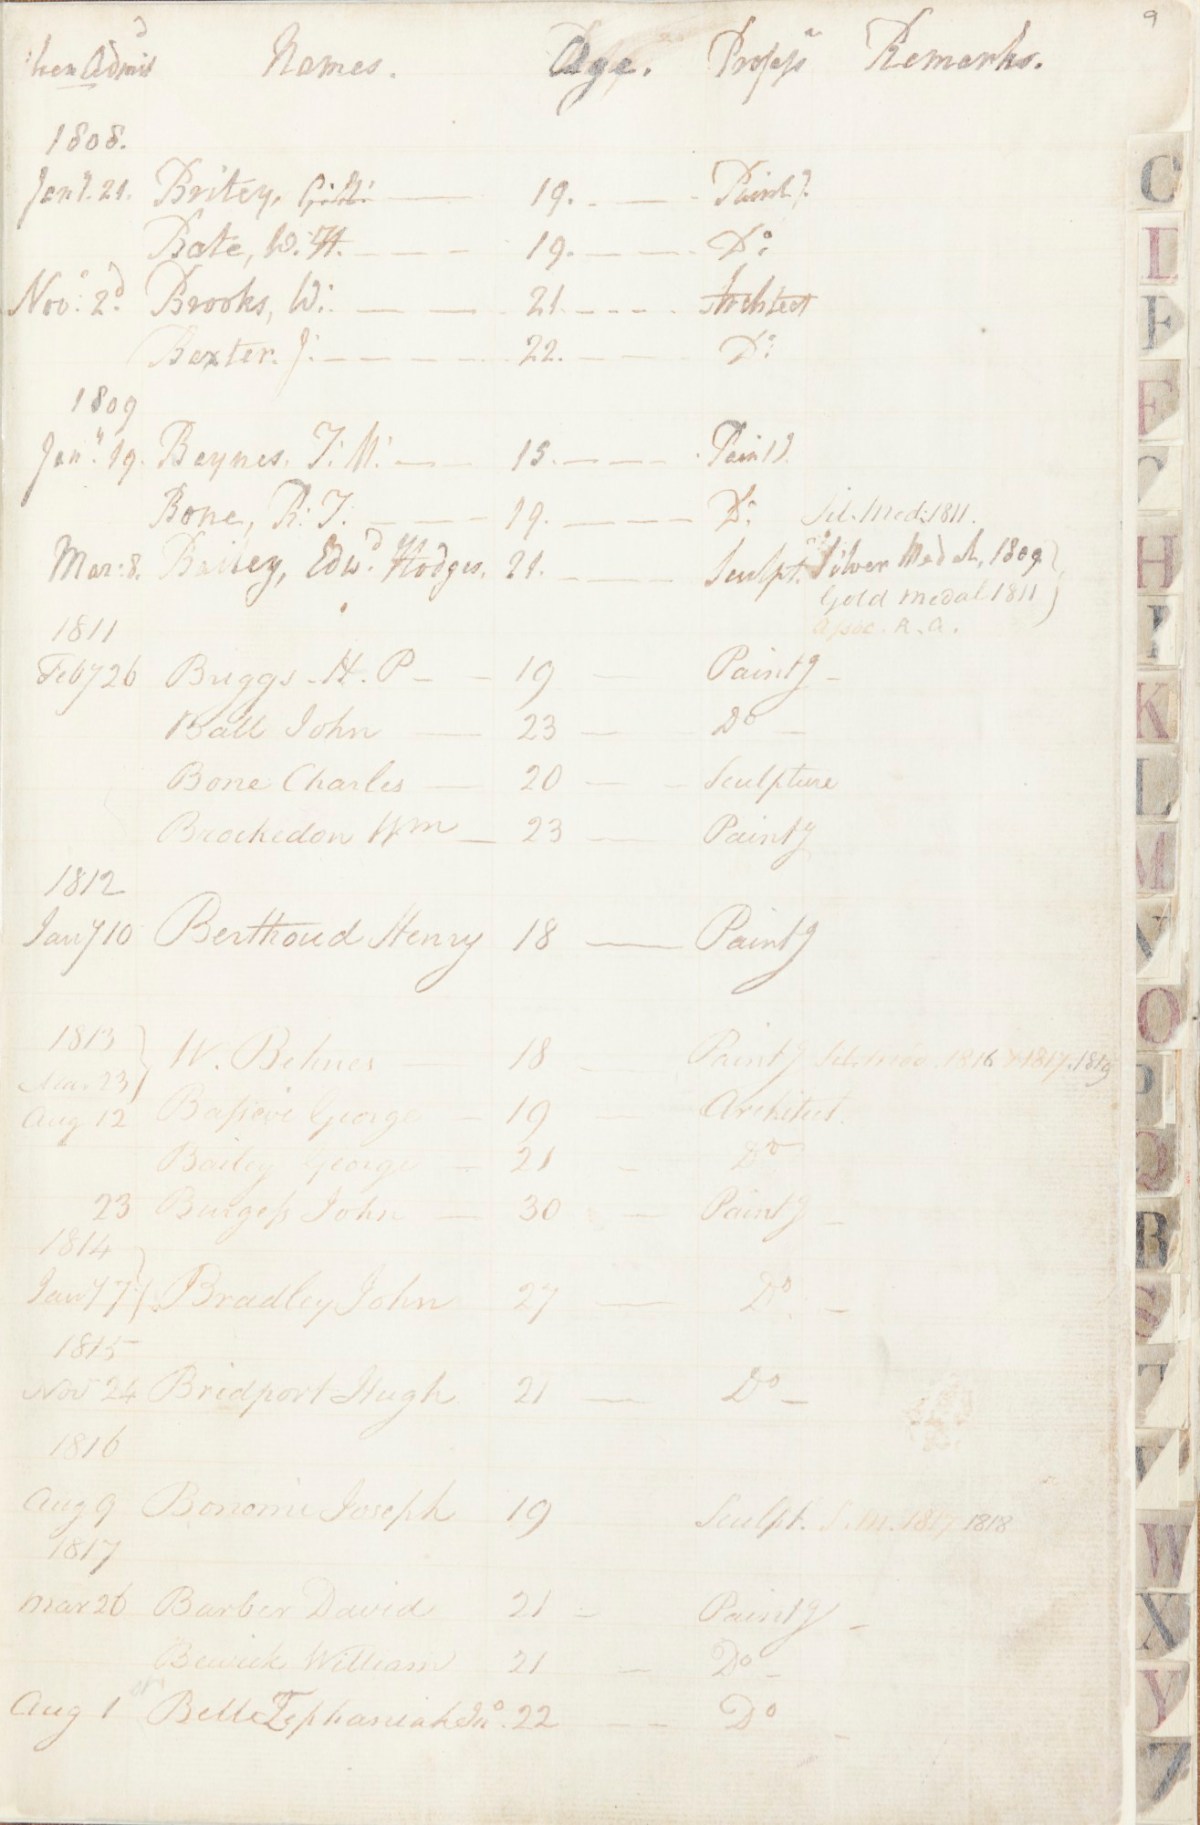 9
when Admitd Names. Age. Professn Remarks.
1808.
Jany. 21. Britey, G: H: 19. Paintg.
Bate, W: H. 19. Do:
Novr: 2d. Brooks, W: 21. Architect
Baxter. J: 22. Do:
1809
Jany. 19. Baynes. T: M: 15. Paintg.
Bone, R: T: 19. Do: Sil. Med: 1811.
Mar: 8. Bailey, Edwd. Hodges. 21. Sculptr. Silver Medal, 1809
Gold medal 1811
Assoc. R. A.
1811
Feby 26 Buggs. H. P 19 Paintg
Ball John 23 Do
Bone Charles 20 Sculpture
Brockedon Wm 23 Paintg
1812
Jany 10 Berthoud Henry 18 Paintg
1813
Mar 23 W. Behnes 18 Paintg Sil. med. 1816 & 1817. 1819
Aug 12 Basevi George 19 Architect.
Bailey George 21 Do
23 Burgess John 30 Paintg
1814
Jany 7 Bradley John 27 Do
1815
Nov 24 Bridport Hugh 21 Do
1816
Aug 9 Bonomi Joseph 19 Sculpt. S.M. 1817 1818
1817
Mar 26 Barber David 21 Paintg
Bewick William 21 Do
Aug 1 Bell Zephaniah Jno. 22 Do
C
D
E
F
G
H
I
K
L
M
N
O
P
Q
R
S
T
V
W
X
Y
Z